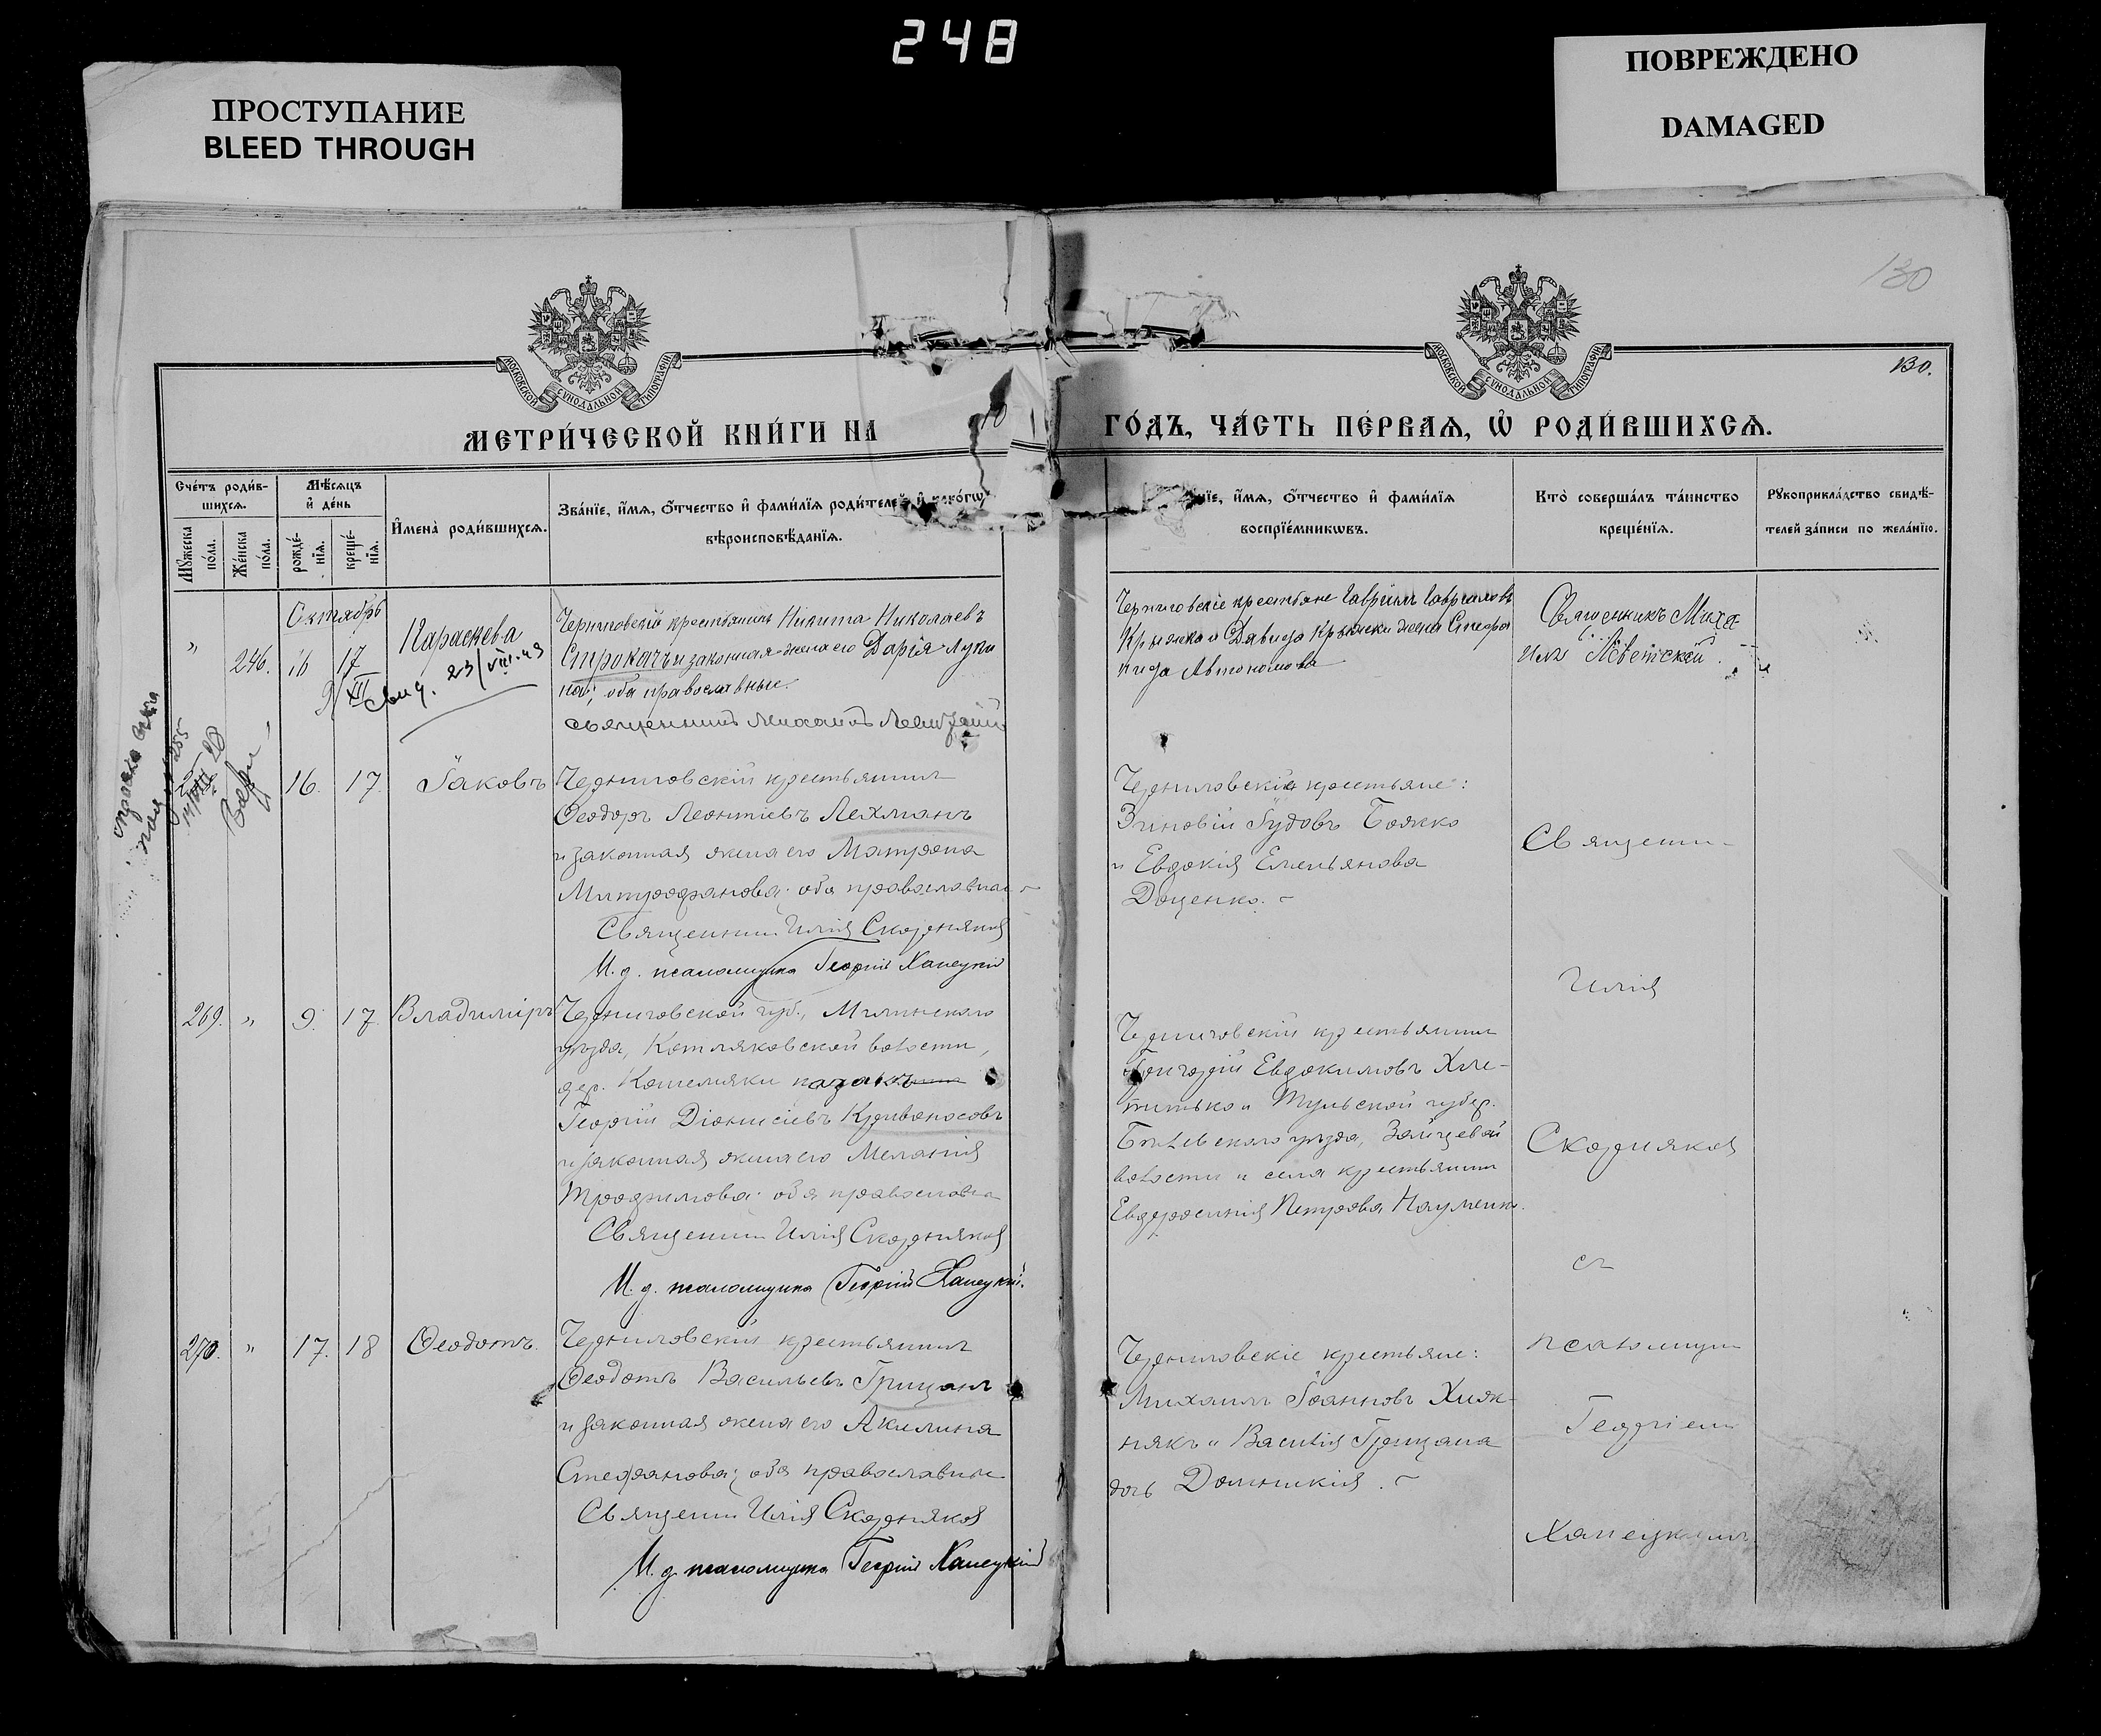 248
ПРОСТУПАНИЕ
BLEED THROUGH
ПОВРЕЖДЕНО
DAMAGED
130
130.
МОСКОВСКОЙ СѴНОДАЛЬНОЙ ТИПОГРАФІИ
МОСКОВСКОЙ СѴНОДАЛЬНОЙ ТИПОГРАФІИ
МЕТРИ́ЧЕСКОЙ КНИ́ГИ НА
ГО́ДЪ, ЧА́СТЬ ПЕ́РВАѦ, Ѡ҆ РОДИ́ВШИХСѦ.
Сче́тъ роди́в-
шихсѧ.
Мꙋ́жеска
по́ла.
Же́нска
по́ла.
Мѣ́сѧцъ
и҆ де́нь
рожде́-
нїѧ.
креще́-
нїѧ.
И҆мена̀ роди́вшихсѧ.
Зва́нїе, и҆́мѧ, ѻ҆́тчество и҆ фами́лїѧ роди́телей, и҆ како́гѡ
вѣроисповѣ́данїѧ.
и҆́мѧ, ѻ҆́тчество и҆ фами́лїѧ
воспрїе́мникѡвъ.
Кто̀ соверша́лъ та́инство
креще́нїѧ.
Рꙋкоприкла́дство свидѣ́-
телей за́писи по жела́нїю.
Октябрь
"
246. 16 17
Параскева
23/VIII-43
Черниговскій крестьянинъ Никита Николаевъ
Строкачъ и законная жена его Дарія Луки
на; оба православные.
Священникъ Михаилъ
Черниговскіе крестьяне Гавріилъ Гавриловъ
Крыжко и Давида Крыжки жена Стефа
нида Автономова
Священникъ Миха
илъ
16. 17.
Іаковъ
Черниговскій крестьянинъ
Ѳеодоръ Леонтіевъ Лехманъ
и законная жена его Матрона
Митрофанова; оба православные
Священникъ Илія Скорняковъ
И. д. псаломщика Георгій Ханецкій
Черниговскіе крестьяне:
Зиновій Іудовъ Божко
и Евдокія Емельянова
Доценко.
Священни-
Илія
269. " 9. 17.
Владиміръ
Черниговской губ., Мглинскаго
уѣзда, Котляковской волости,
дер. Кошемяки казакъ
Георгій Діонисіевъ Кривоносовъ
и законная жена его Меланія
Трофимова; оба православные
Священникъ Илія Скорняковъ
И. д. псаломщика Георгій Ханецкій.
Черниговскій крестьянинъ
Григорій Евдокимовъ
и Тульской губер.
Бѣлевскаго уѣзда, Зайцевой
волости и села крестьянин
Евфросинія Петрова Науменко.
Скорняковъ
съ
270. " 17. 18
Ѳеодотъ.
Черниговскій крестьянинъ
Ѳеодотъ Васильевъ Грицанъ
и законная жена его Акилина
Стефанова; оба православные
Священникъ Илія Скорняковъ
И. д. псаломщика Георгій Ханецкій
Черниговскіе крестьяне:
Михаилъ Іоанновъ Хиж-
някъ и Василія Грицана
дочь Домникія.
псаломщик
Георгіемъ
Ханецкимъ